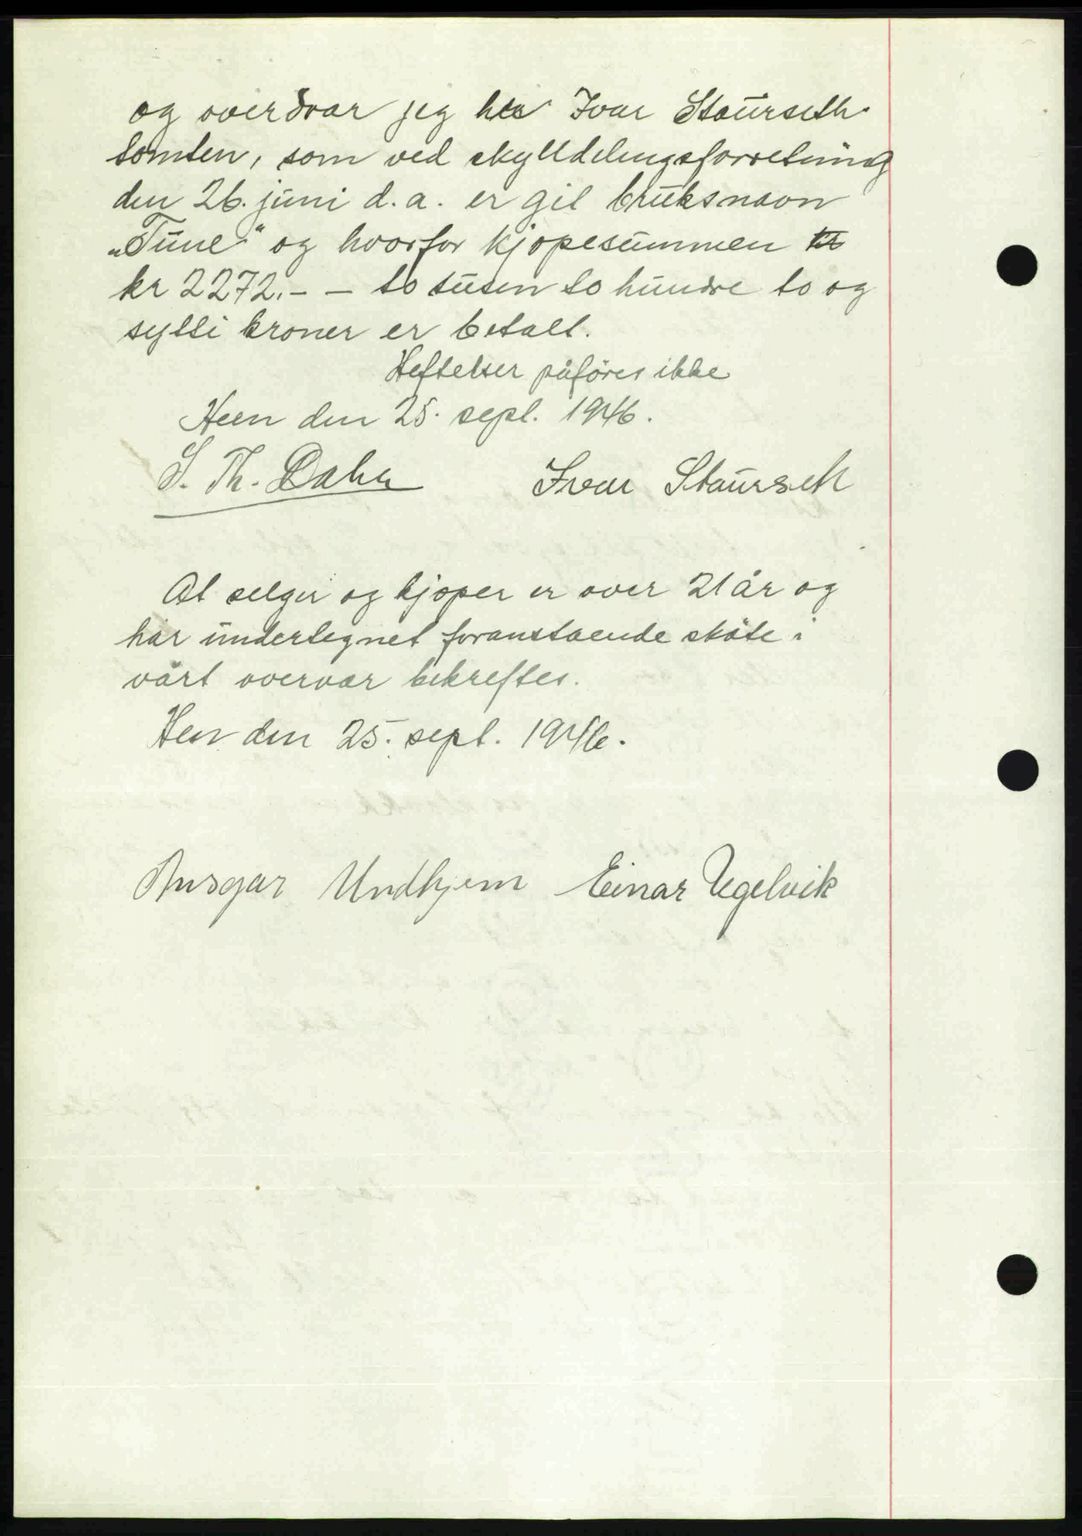 og overdrar jeg hr Ivar Staurseth
tomten, som ved skylddelingsforretning
den 26. juni d.a. er git bruksnavn
„Tune" og hvorfor kjøpesummen
kr 2272.- – to tusen to hundre to og
sytti kroner er betalt.
Heftelser påföres ikke
Hen den 25. sept. 1946.
S. Th. Dahn Ivar Staurseth
At selger og kjøper er over 21 år og
har undertegnet foranstaende sköte i
vårt overvær bekreftes.
Hen den 25. sept. 1946.
Ansgar Undhjem Einar Ugelvik